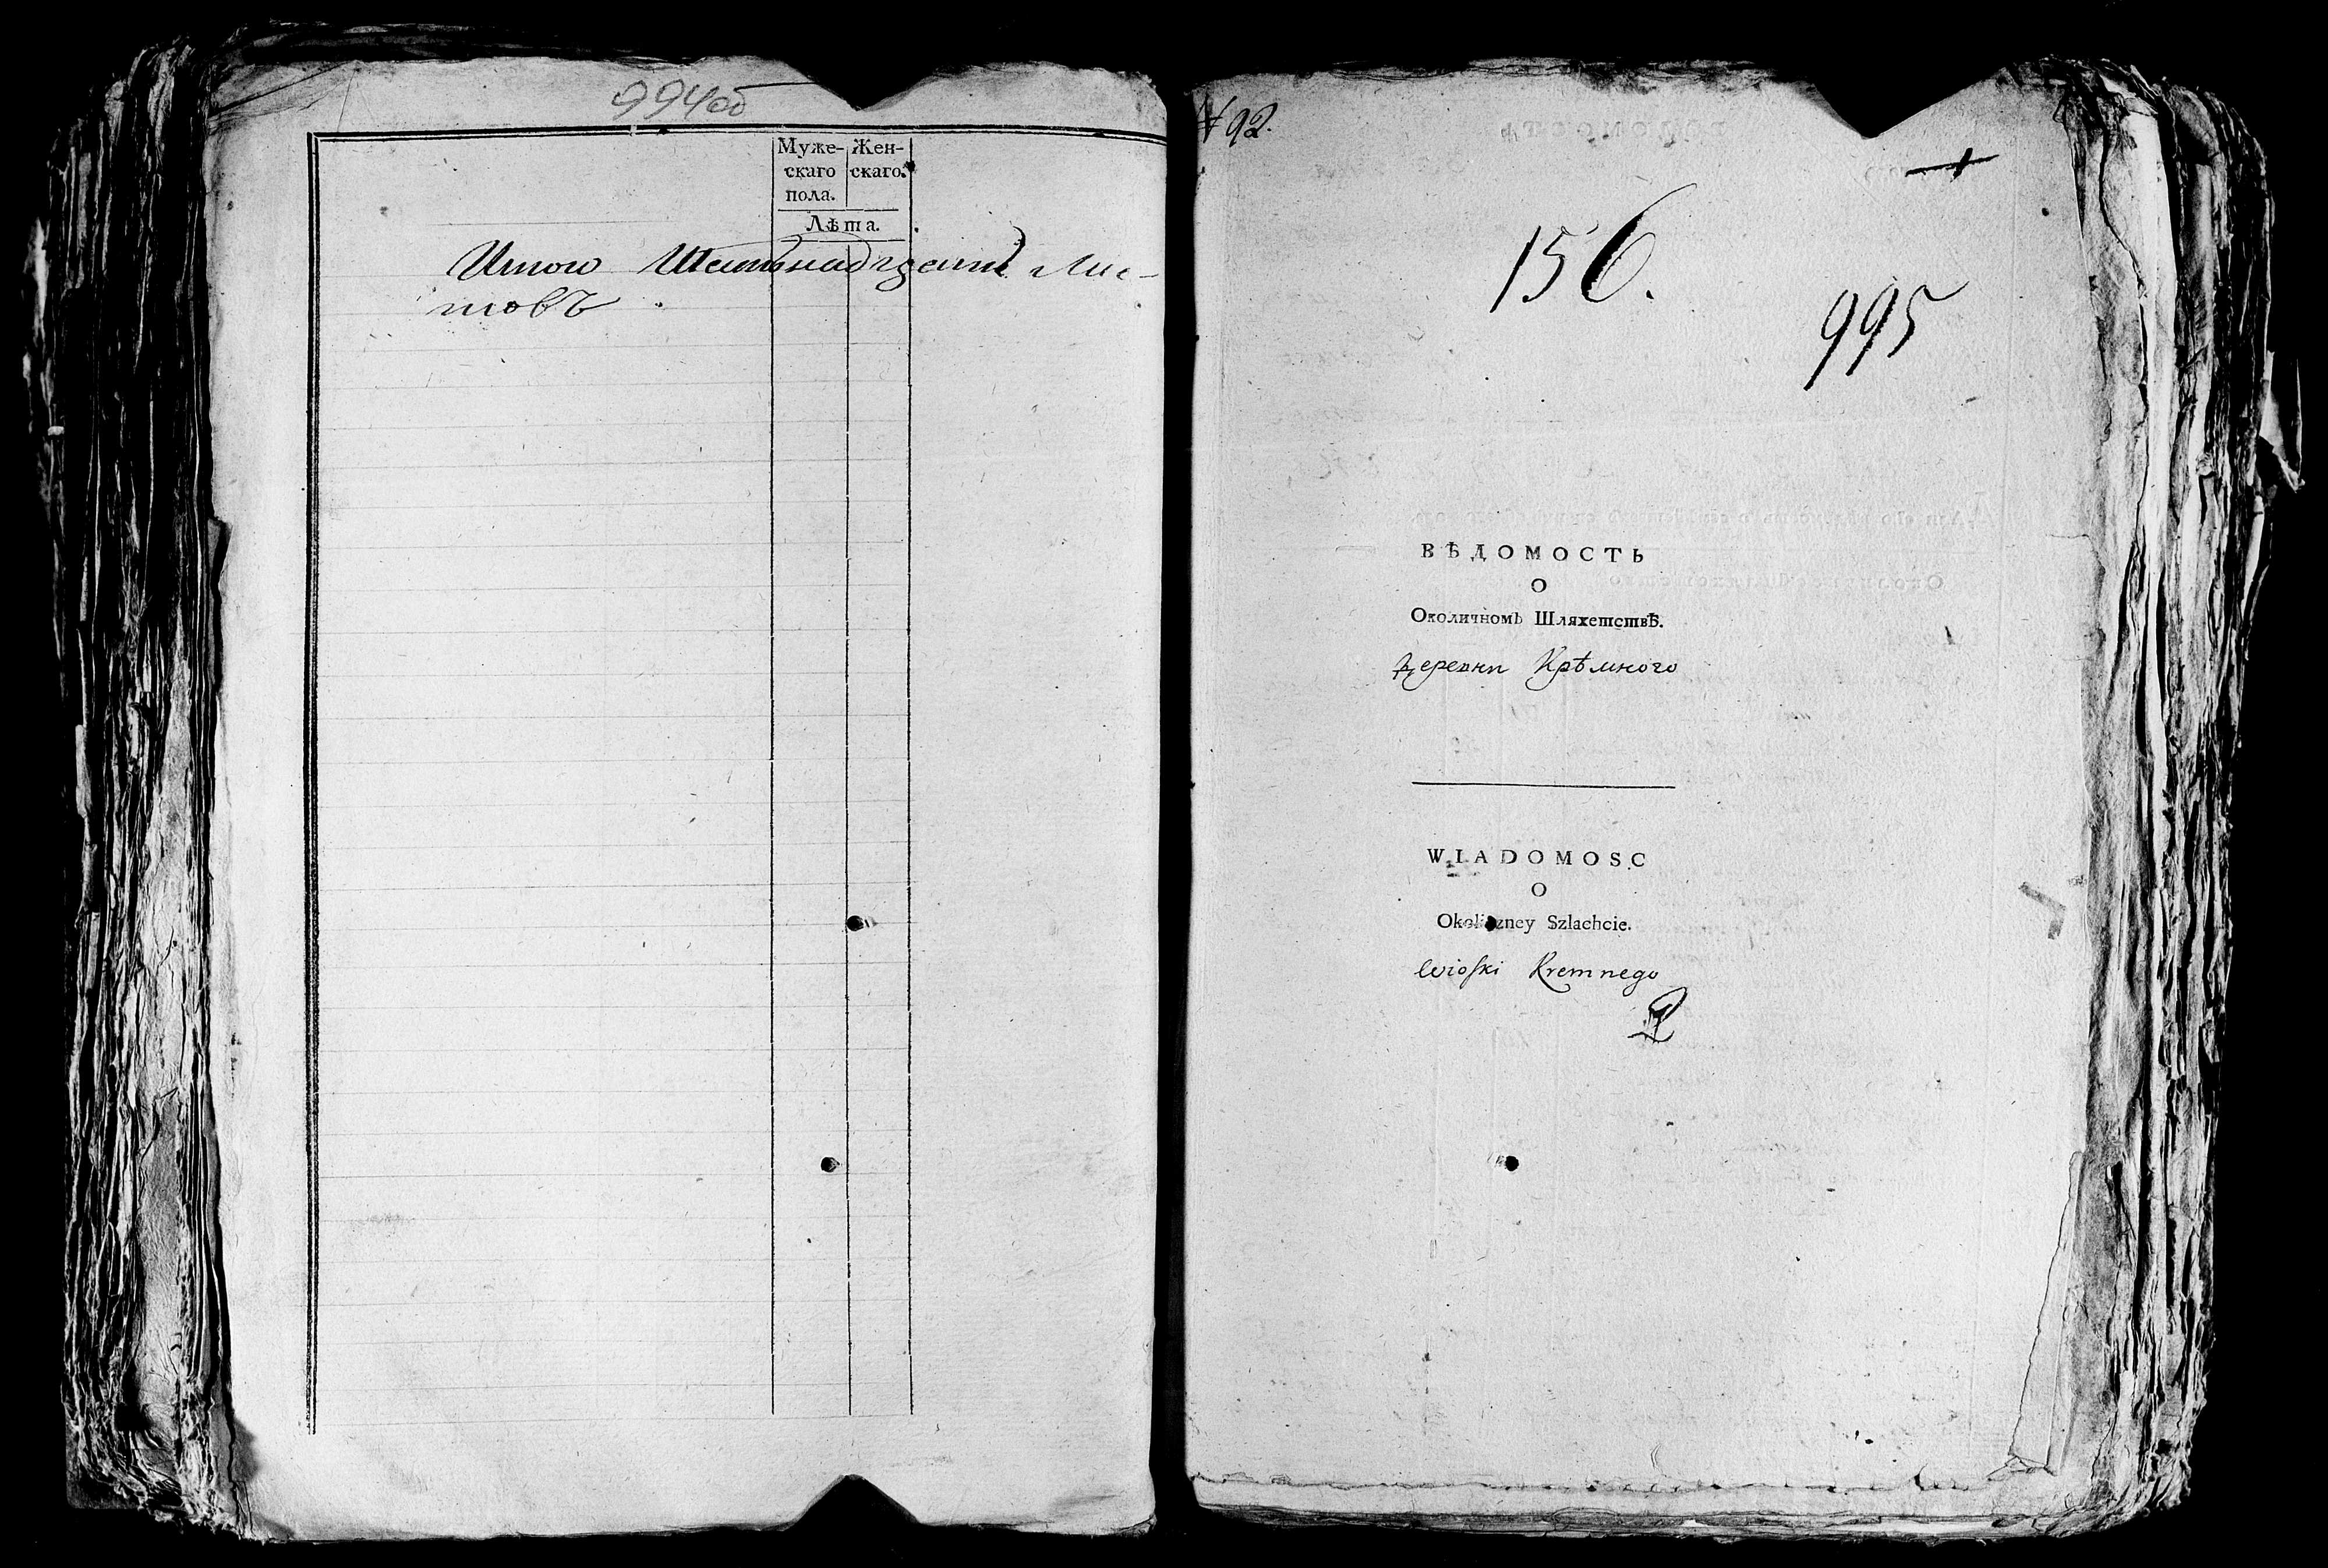 994об
Муже- Жен-
скаго скаго.
пола.
Лѣта.
Итого Шестьнадцать Лис-
товъ
№ 92.
156.
995
ВѢДОМОСТЬ
О
Околичномъ Шляхетствѣ.
Деревни Крѣмного
WIADOMOSC
O
Okoliczney Szlachcie.
Wioski Kremnego